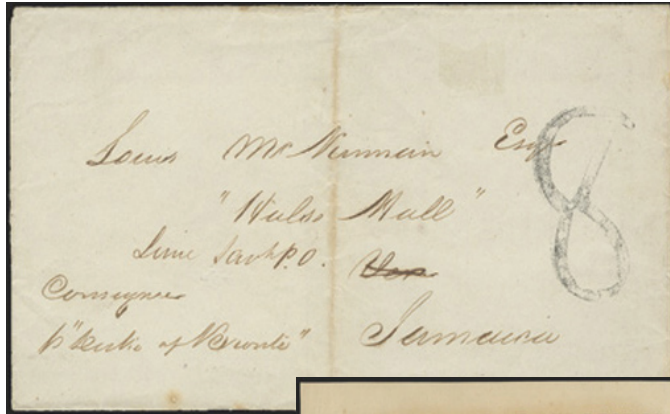 Louis McKinnin Esqr
"Hulse Mall"
Lime Savh P.O.
Consignee
p "Duke of Bronte" Jamaica
8